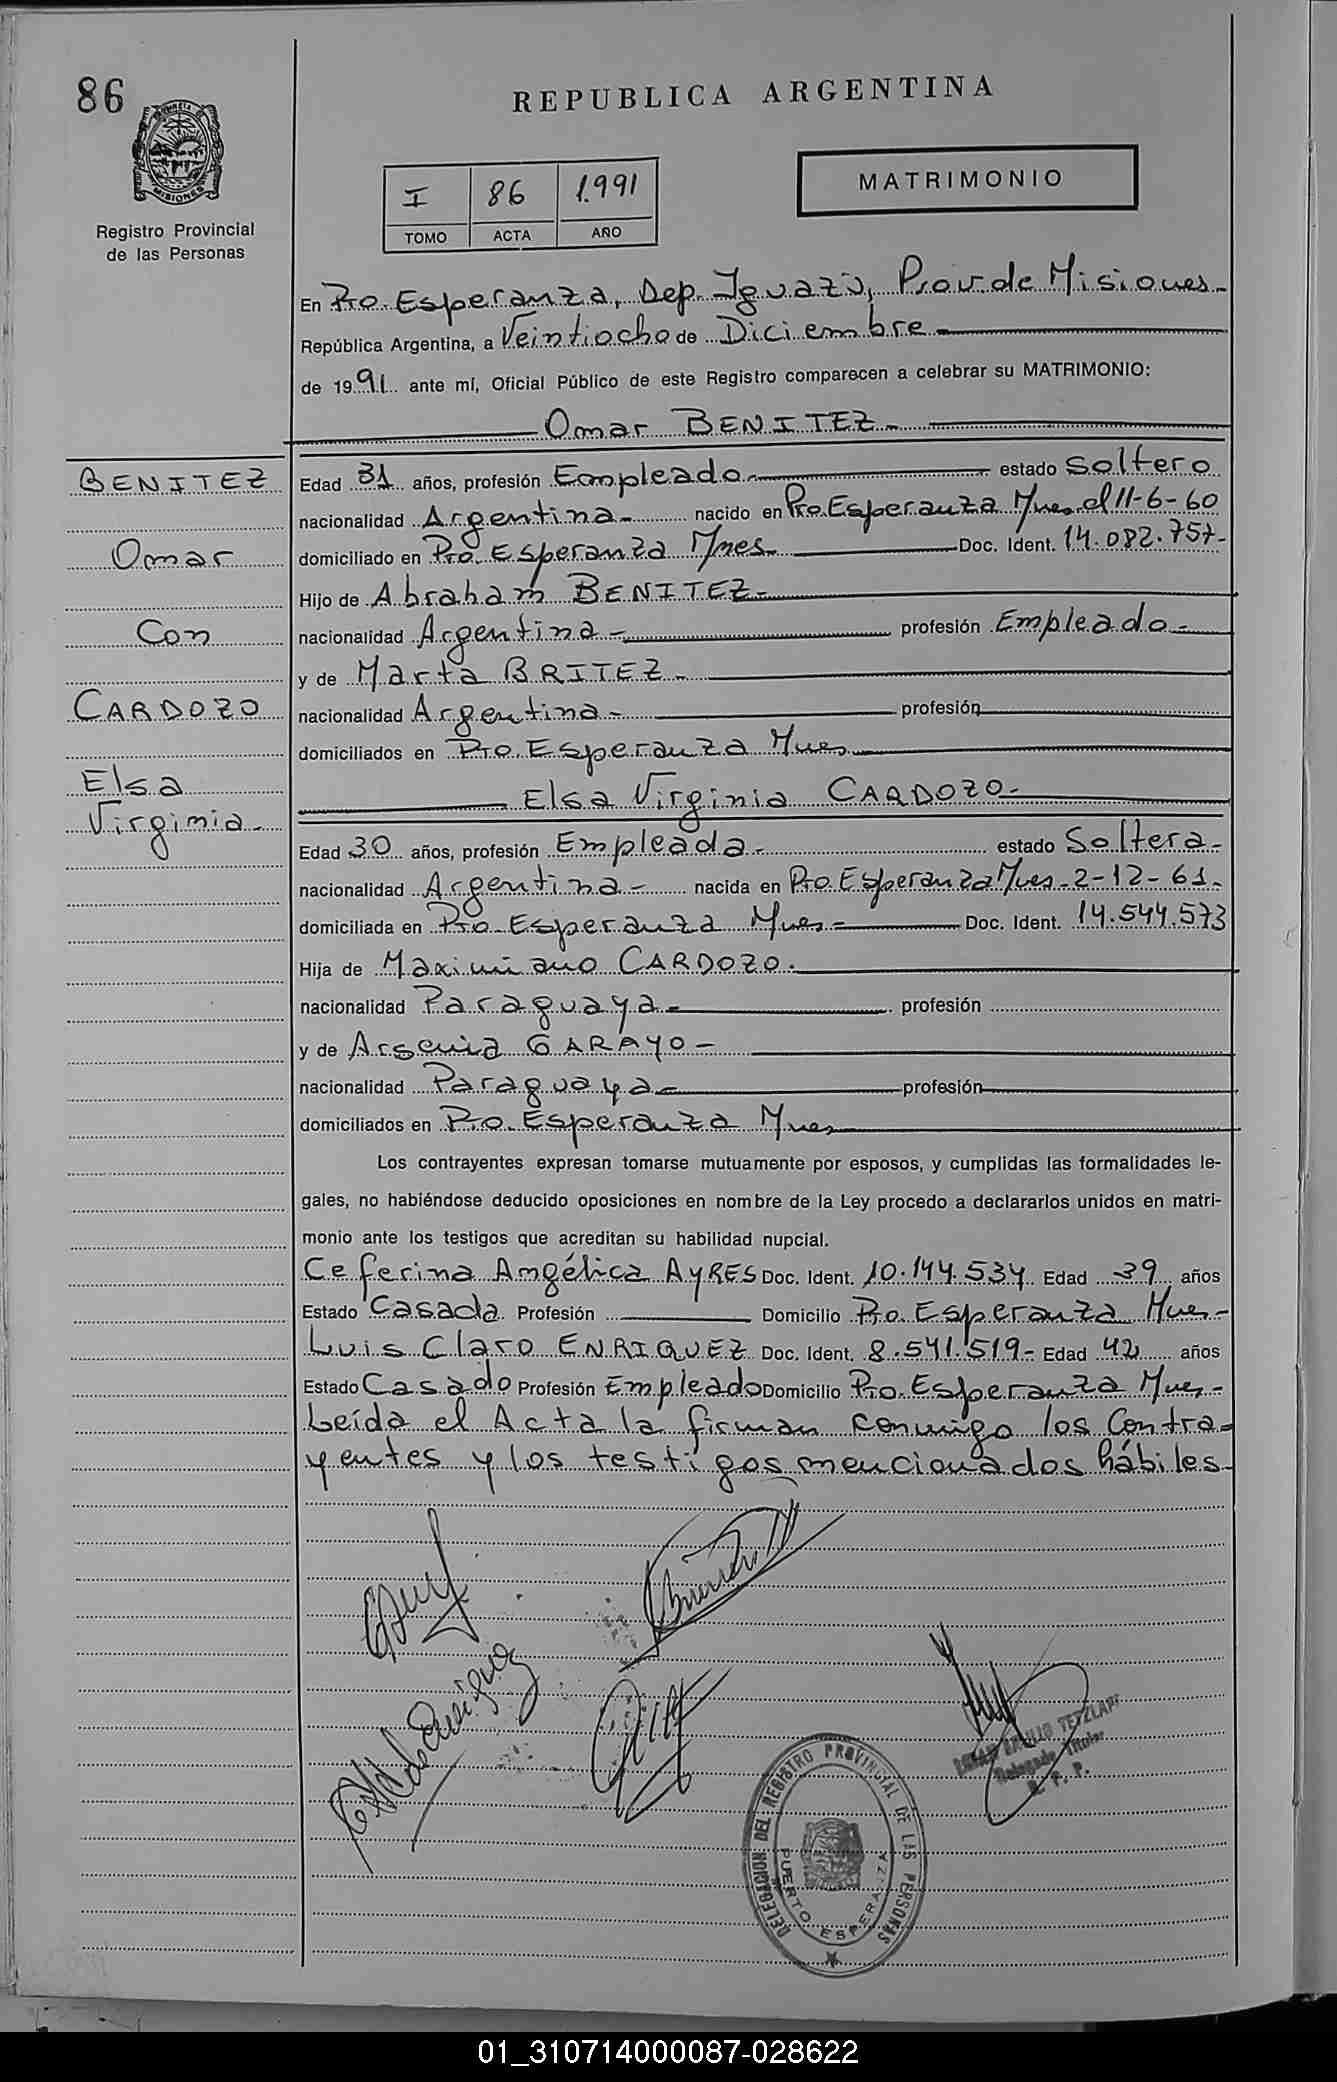 86
REPUBLICA ARGENTINA
MISIONES
Registro Provincial
de las Personas
I 86 1.991
TOMO ACTA AÑO
MATRIMONIO
En Pto. Esperanza, Dep. Iguazú, Prov. de Misiones.-
República Argentina, a Veintiocho de Diciembre.-
de 1991 ante mí, Oficial Público de este Registro comparecen a celebrar su MATRIMONIO:
Omar BENITEZ.-
BENITEZ
Omar
Con
CARDOZO
Elsa
Virginia.-
Edad 31 años, profesión Empleado.- estado Soltero
nacionalidad Argentina.- nacido en Pto. Esperanza Mnes. el 11-6-60
domiciliado en Pto. Esperanza Mnes.- Doc. Ident. 14.082.757.-
Hijo de Abraham BENITEZ.-
nacionalidad Argentina.- profesión Empleado.-
y de Marta BRITEZ.-
nacionalidad Argentina.- profesión
domiciliados en Pto. Esperanza Mnes.
Elsa Virginia CARDOZO.-
Edad 30 años, profesión Empleada.- estado Soltera.-
nacionalidad Argentina.- nacida en Pto. Esperanza Mnes.-2-12-61.-
domiciliada en Pto. Esperanza Mnes.- Doc. Ident. 14.544.573
Hija de Maximiano CARDOZO.
nacionalidad Paraguaya.- profesión
y de Arsenia GARAYO.-
nacionalidad Paraguaya.- profesión
domiciliados en Pto. Esperanza Mnes
Los contrayentes expresan tomarse mutuamente por esposos, y cumplidas las formalidades le-
gales, no habiéndose deducido oposiciones en nombre de la Ley procedo a declararlos unidos en matri-
monio ante los testigos que acreditan su habilidad nupcial.
Ceferina Angélica AYRES Doc. Ident. 10.144.534 Edad 39 años
Estado Casada Profesión Domicilio Pto. Esperanza Mnes.-
Luis Claro ENRIQUEZ Doc. Ident. 8.541.519.- Edad 42 años
Estado Casado Profesión Empleado Domicilio Pto. Esperanza Mnes.-
Leída el Acta la firman conmigo los Contra-
yentes y los testigos mencionados hábiles.-
de Enriquez
TETZLAFF
Delegado Titular
R. P. P.
DELEGACION DEL REGISTRO PROVINCIAL DE LAS PERSONAS
PUERTO ESPERANZA
01_310714000087-028622